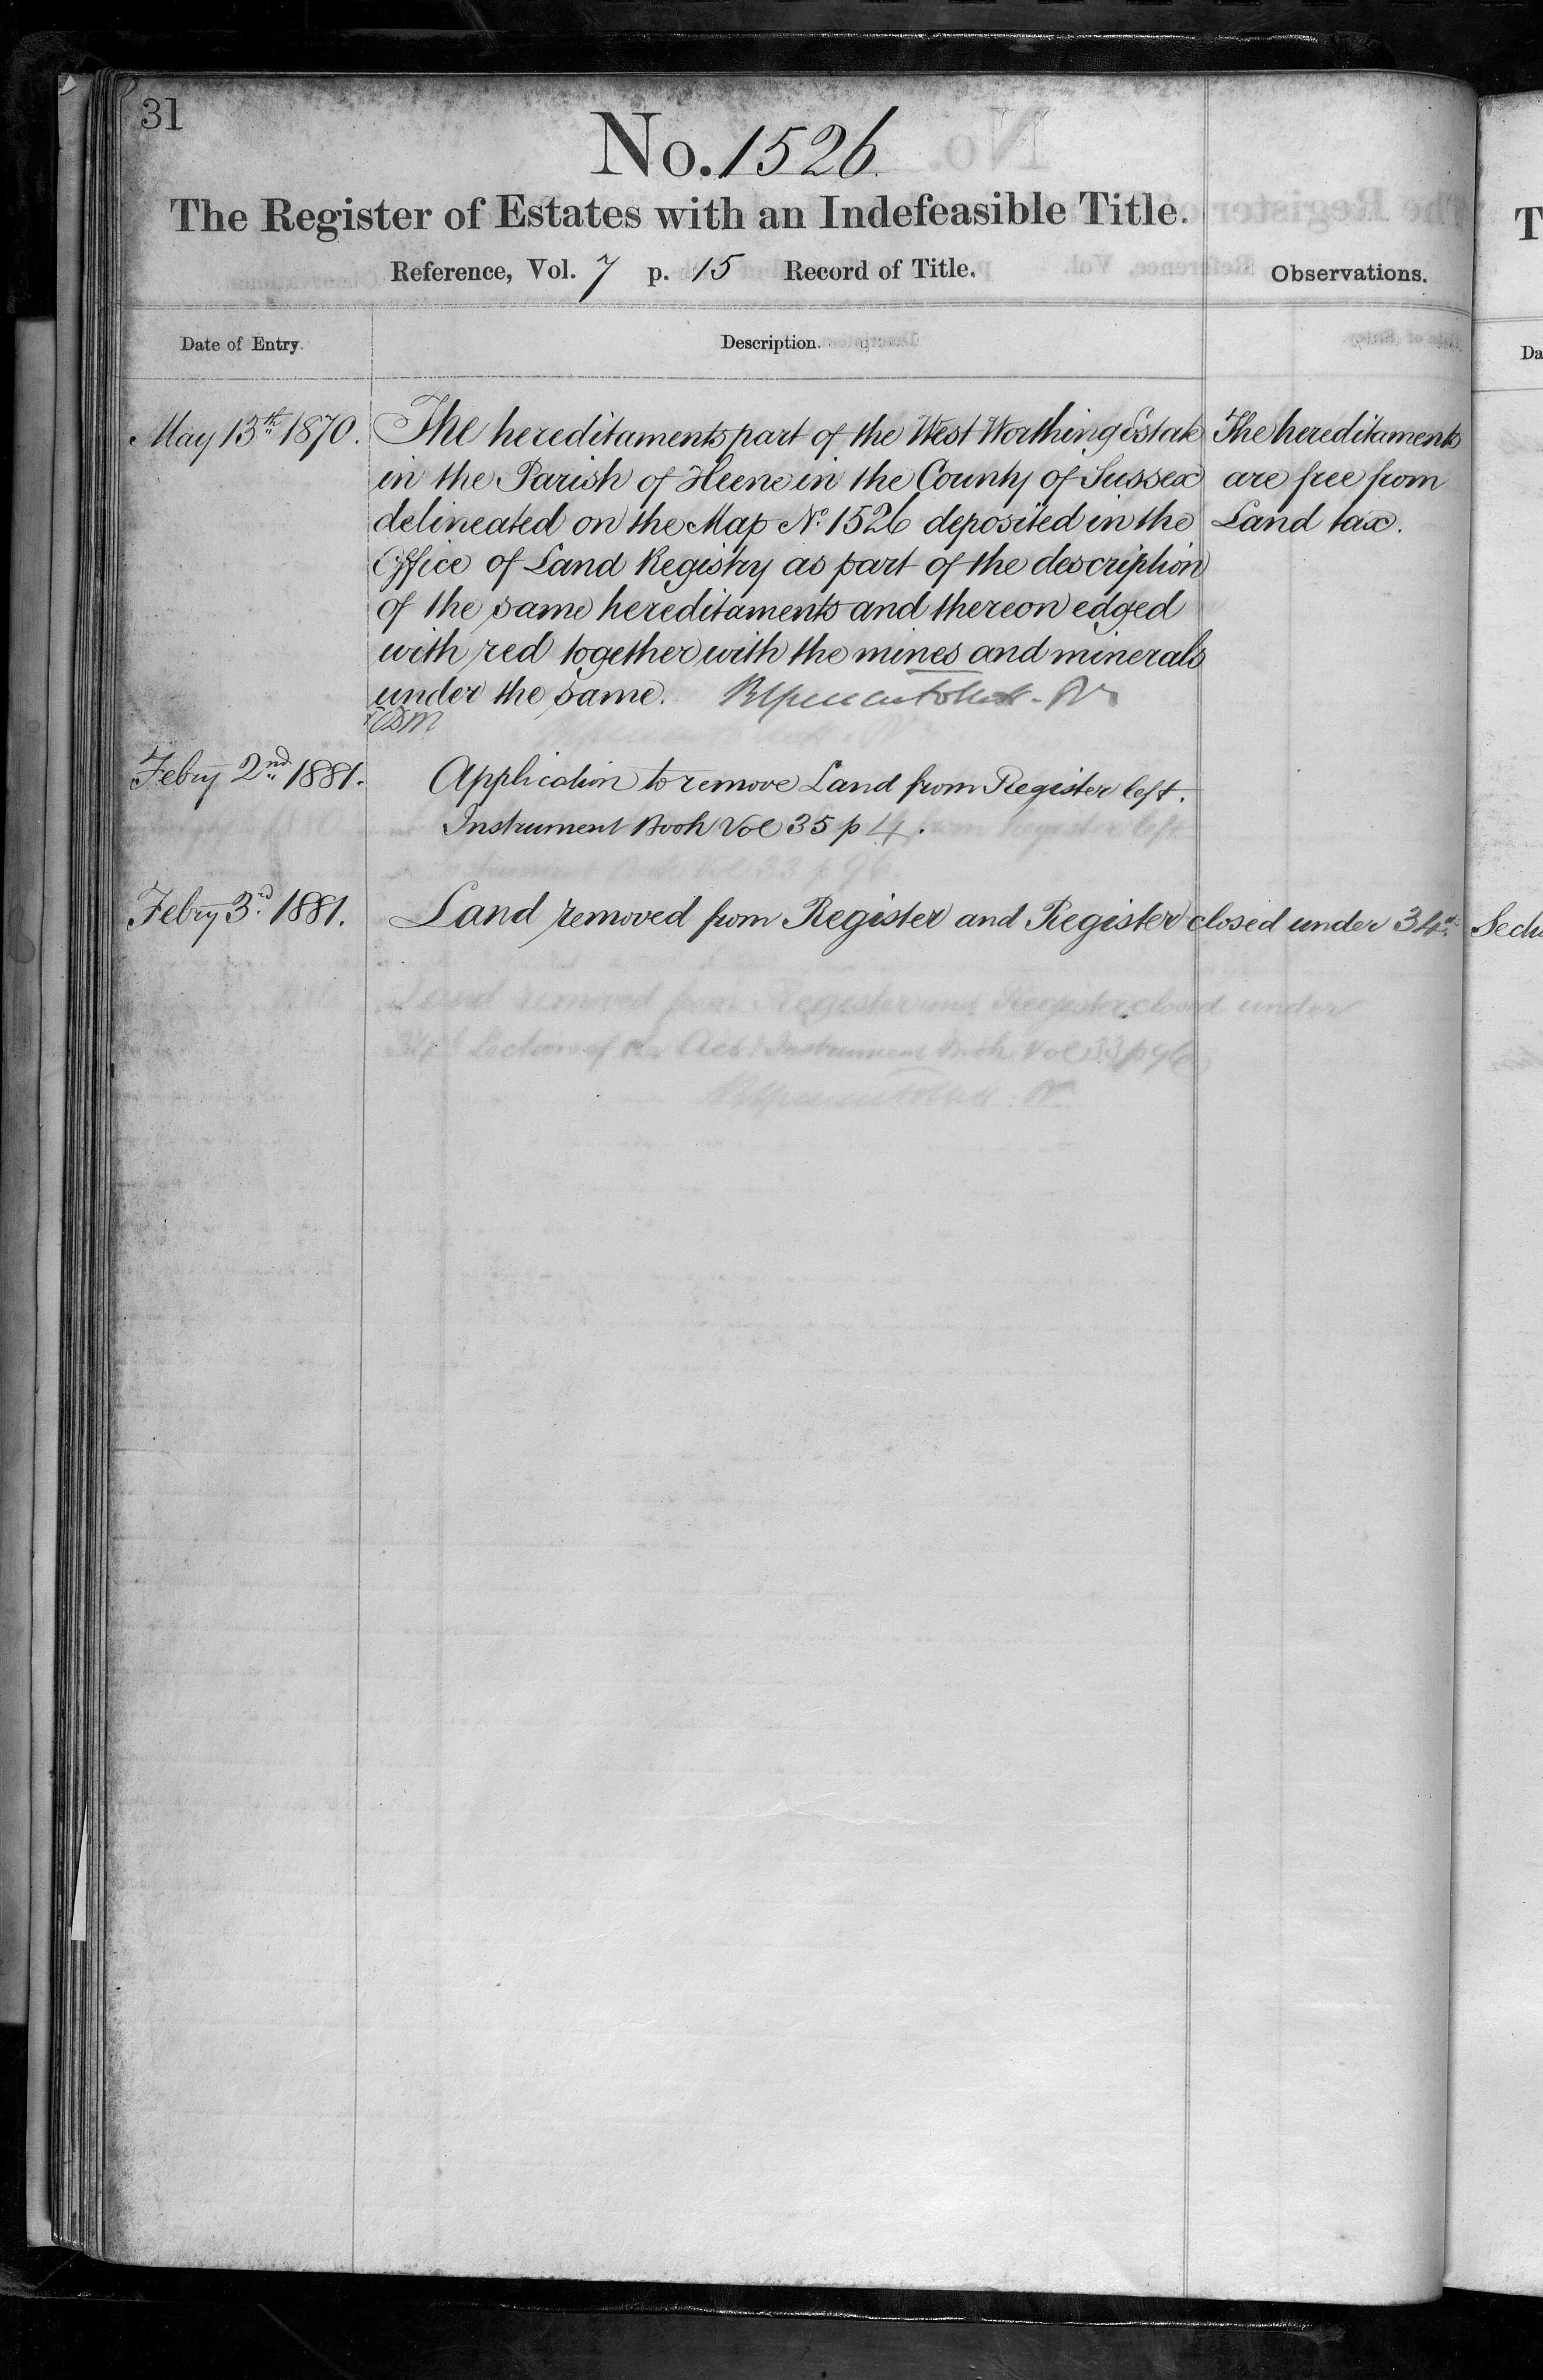 31
No. 1526
The Register of Estates with an Indefeasible Title.
Reference, Vol. 7 p. 15 Record of Title.
Observations.
Date of Entry.
Description.
May 13th 1870.
The hereditaments part of the West Worthing Estate
in the Parish of Heene in the County of Sussex
delineated on the Map No. 1526 deposited in the
Office of Land Registry as part of the description
of the same hereditaments and thereon edged
with red together with the mines and minerals
under the same.
The hereditaments
are free from
Land tax.
Febry 2nd 1881.
Application to remove Land from Register left.
Instrument Book Vol 35 p 4.
Febry 3rd 1881.
Land removed from Register and Register closed under 34th Secti
T
Da